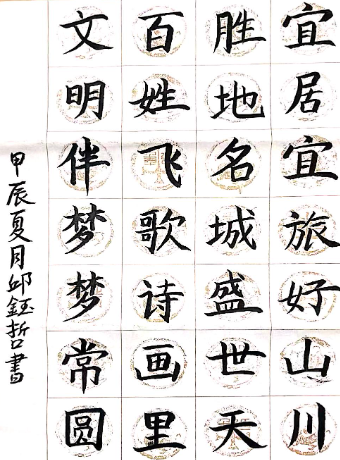 宜居宜旅好山川
胜地名城盛世天
百姓飞歌诗画里
文明伴梦梦常圆
甲辰夏月邱钰哲書